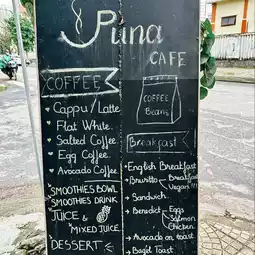 Puna
CAFE
COFFEE
Cappu/Latte
Flat White.
Salted Coffee
Egg Coffee.
Avocado Coffee
SMOOTHIES BOWL
SMOOTHIES DRINK
JUICE &
MIXED JUICE
DESSERT
COFFEE
Beans
Breakfast
English Breakfast
Burritto Breakfast
Vegan !!!
Sandwich.
Benedict Eggs
Salmon
Chicken
Avocado on toast
Bagel Toast